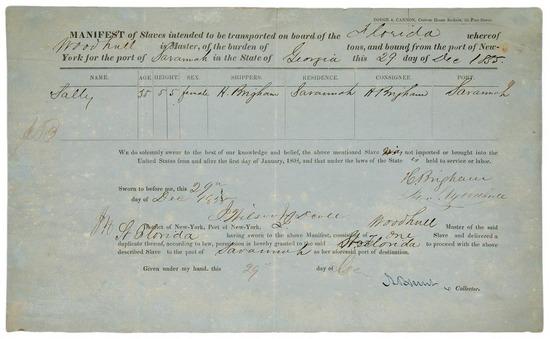 DODGE & CANNON, Custom House Brokers, 55 Pine-Street.
MANIFEST of Slaves intended to be transported on board of the Florida whereof
Woodhull is Master, of the burden of tons, and bound from the port of New-
York for the port of Savannah in the State of Georgia this 29 day of Dec 1855.
NAME. AGE HEIGHT. SEX. SHIPPERS. RESIDENCE. CONSIGNEE. PORT.
Sally 35 5 5 female H. Brigham Savannah H Brigham Savannah
We do solemnly swear to the best of our knowledge and belief, the above mentioned Slave was not imported or brought into the
United States from and after the first day of January, 1808, and that under the laws of the State is held to service or labor.
Sworn to before me, this 29th
day of Dec 1855
H Brigham
District of New-York, Port of New-York. Woodhull Master of the said
St Florida having sworn to the above Manifest, consisting of One Slave and delivered a
duplicate thereof, according to law, permission is hereby granted to the said St Florida to proceed with the above
described Slave to the port of Savannah as her aforesaid port of destination.
Given under my hand. this 29 day of Dec
Collector.